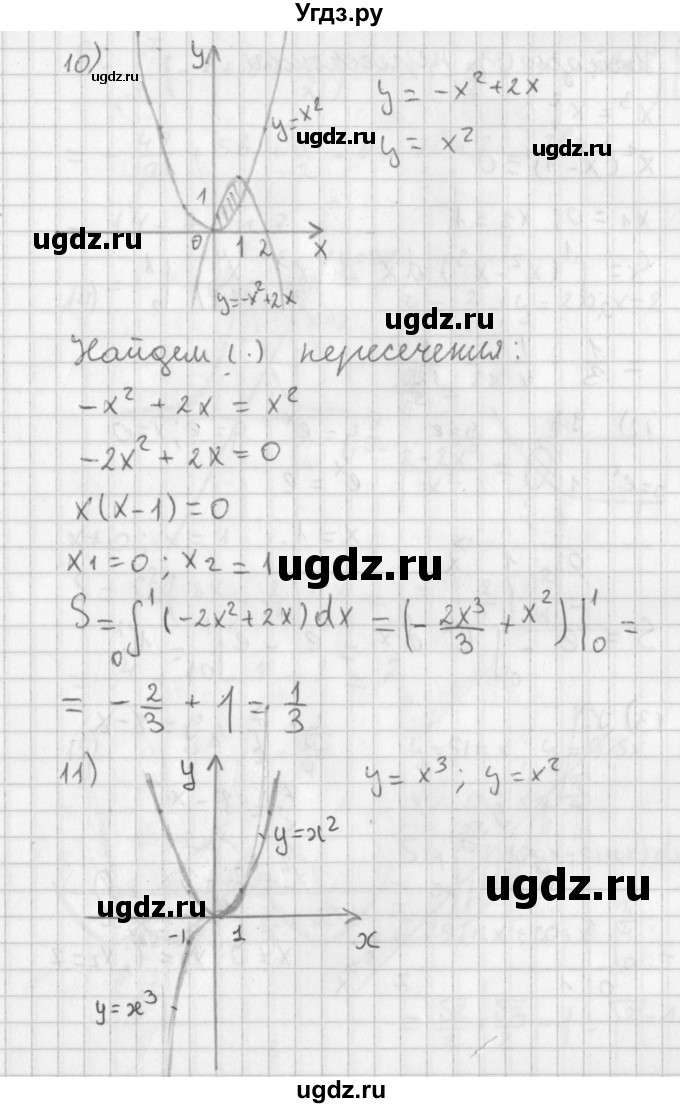 Угдз.ру
10)
ugdz.ru
y
y=x²
ugdz.ru
y = -x²+2x
y = x²
ugdz.ru
1
ugdz.ru
0 1 2 x
y=-x²+2x
ugdz.ru
Найдем (·) пересечения:
-x² + 2x = x²
-2x² + 2x = 0
x(x-1) = 0
x1=0; x2 = 1
ugdz.ru
S = ∫₀¹ (-2x²+2x)dx = (-2x³/3 + x²)|₀¹ =
= -2/3 + 1 = 1/3
11)
y
y= x³; y= x²
y=x²
ugdz.ru
ugdz.ru
-1 1 x
y=x³
ugdz.ru
ugdz.ru